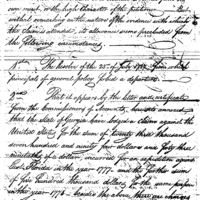 own merit, in the high character of the petitioner. But
without remarking on the nature of the evidence with which
the claim is attended, its allowance seems precluded from
the following circumstances.
1st The Resolve of the 23d of July 1787, from which
principals of general policy forbid a departure.
2d That it appears by the letter and certificate
from the Commissioner of Accounts, hereunto annexed
that the State of Georgia have lodged a Claim against the
United States for the sum of twenty three thousand
seven hundred and ninety four dollars and forty three
ninetieths of a dollar, incurred for an expedition against
East Florida in the year 1777. and the further sum of
five hundred thousand dollars for the same purpose
in the year 1778. besides the above, there are charges